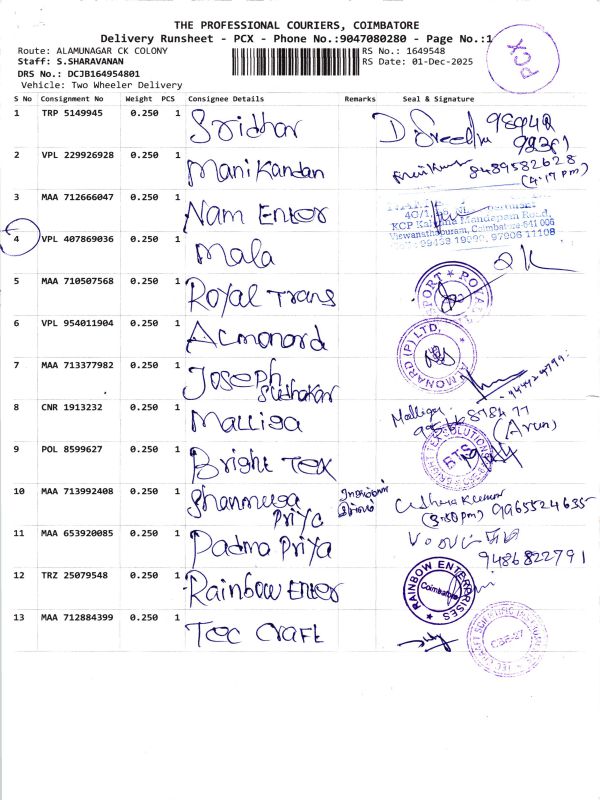 THE PROFESSIONAL COURIERS, COIMBATORE
Delivery Runsheet - PCX - Phone No.:9047080280 - Page No.:1
PCX
Route: ALAMUNAGAR CK COLONY
RS No.: 1649548
Staff: S.SHARAVANAN
RS Date: 01-Dec-2025
DRS No.: DCJB164954801
Vehicle: Two Wheeler Delivery
S No Consignment No Weight PCS Consignee Details Remarks Seal & Signature
1 TRP 5149945 0.250 1 Sridhar D Sreedhar
2 VPL 229926928 0.250 1 Manikandan 8489582628
(4:17 pm)
3 MAA 712666047 0.250 1 Nam Enter
KCP Kalyana Mandapam Road,
Viewanathapuram, Coimbatore-641 006
99433 19090, 97906 11108
4 VPL 407869036 0.250 1 Mala
5 MAA 710507568 0.250 1 Royal Trans
6 VPL 954011904 0.250 1 Acmonard
MONARD (P) LTD.
7 MAA 713377982 0.250 1 Joseph
Sudhakar
8 CNR 1913232 0.250 1 Malliga Malliga
(Arun)
9 POL 8599627 0.250 1 Bright Tex
BRIGHT TEX SOLUTIONS
BTS
10 MAA 713992408 0.250 1 Shanmuga
Priya
(3:50pm) 9965524635
11 MAA 653920085 0.250 1 Padma Priya
9486822791
12 TRZ 25079548 0.250 1 Rainbow Enter
RAINBOW ENTERPRISES
Coimbatore
13 MAA 712884399 0.250 1 Tec Craft
CBE-27